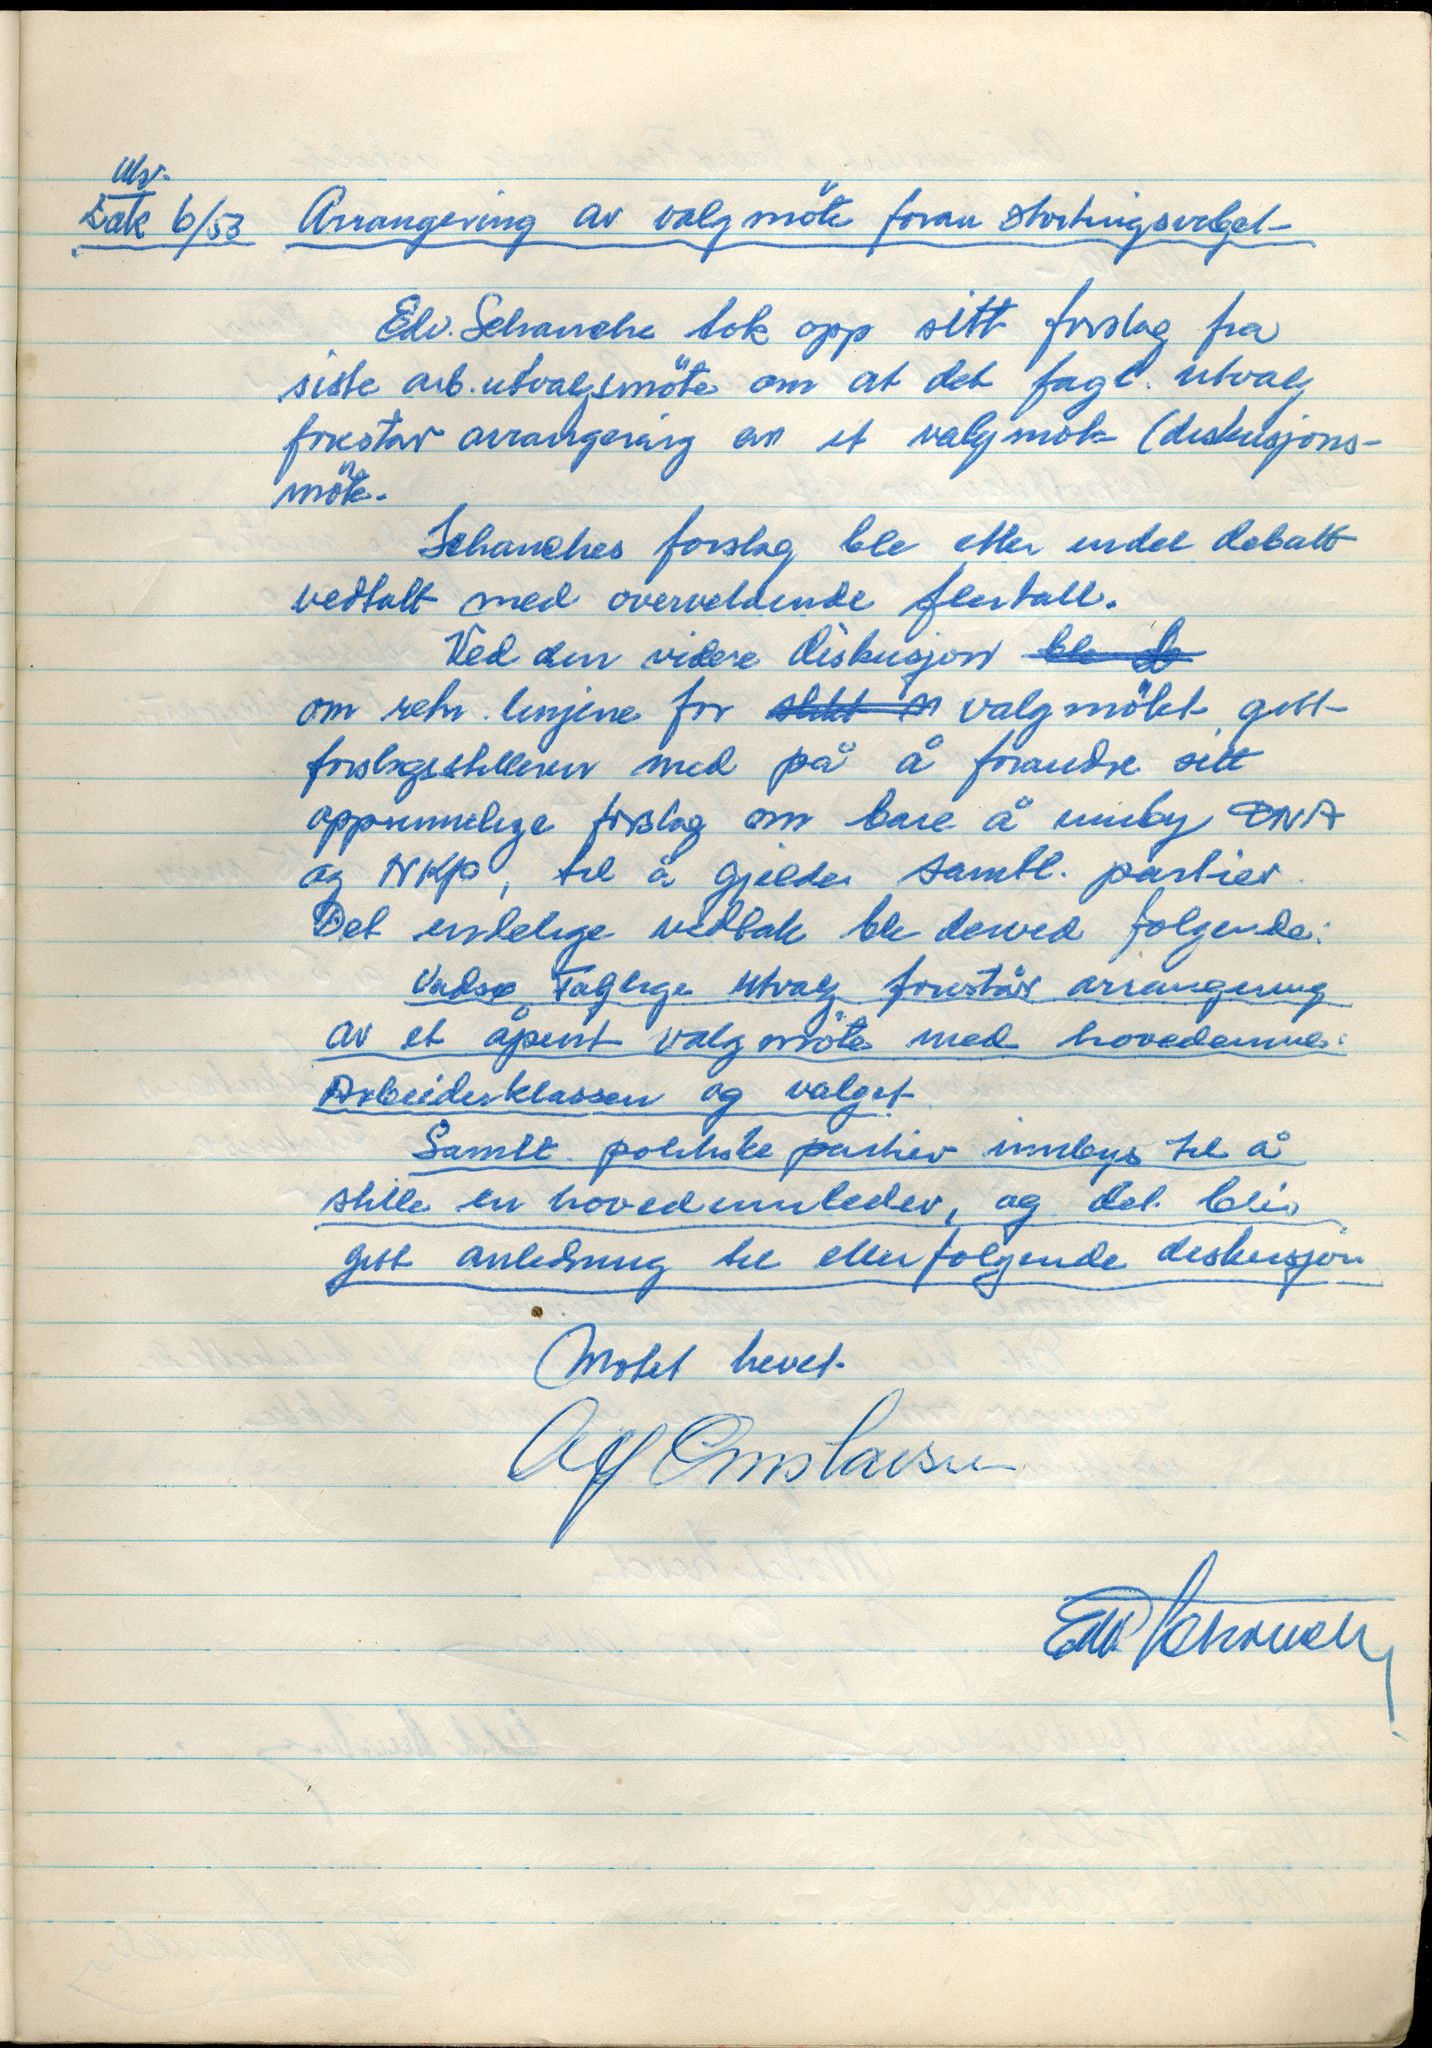 Utv.
Sak 6/53 Arrangering av valgmöte foran stortingsvalget
Edv. Schanche tok opp sitt forslag fra
siste arb.utvalgsmöte om at det fagl. utvalg
forestår arrangering av et valgmöte (diskusjons-
möte.
Schanches forslag ble etter endel debatt
vedtatt med overveldende flertall.
Ved den videre diskusjon ble d
om retn.linjene for valgmötet gikk
forslagsstilleren med på å forandre sitt
opprinnelige forslag om bare å innby DNA
og NKP, til å gjelde samtl. partier.
Det endelige vedtak ble derved følgende:
Vadsø Faglige Utvalg forestår arrangering
av et åpent valgmöte med hovedemne:
Arbeiderklassen og valget.
Samtl. politiske partier innbys til å
stille en hovedinnleder, og det blir
gitt anledning til etterfølgende diskusjon
Møtet hevet.
Alf
Edv Schanche